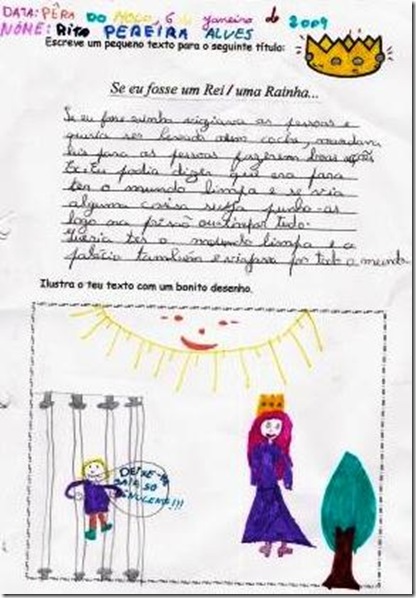 DATA: PÊRA DO MOÇO, 6 de janeiro de 2009
NÓME: Rita PEREIRA ALVES
Escreve um pequeno texto para o seguinte título:
Se eu fosse um Rei / uma Rainha...
Se eu fosse rainha vigiava as pessoas e
queria ser levada num coche, mandava
leis para as pessoas fazerem boas ações
Eu podia dizer que era para
ter o mundo limpo e se via
alguma coisa suja punha-as
logo na prisão ou limpar tudo.
Queria ter o mundo limpo e o
palácio também e viajava por todo o mundo.
Ilustra o teu texto com um bonito desenho.
DEIXE-ME
SAIR SO
INUCENTE!!!